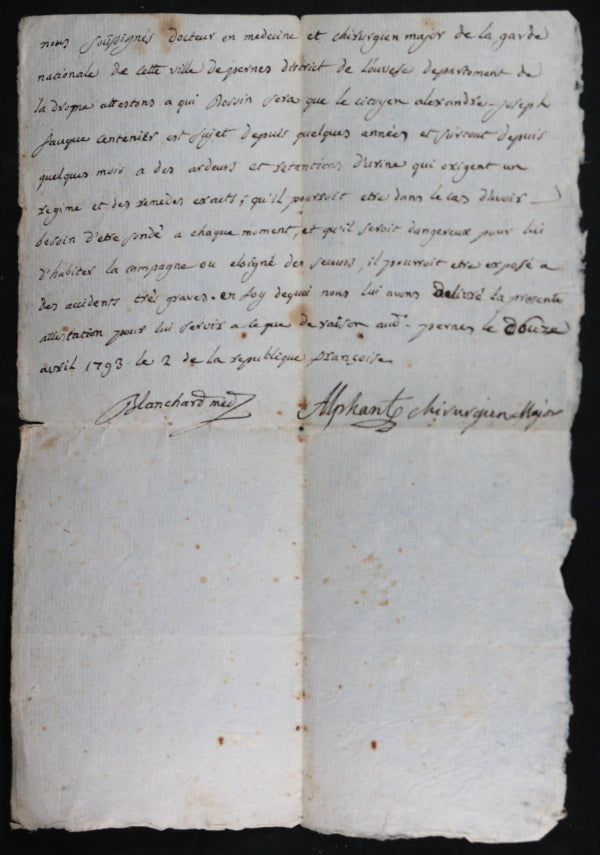 nous soussignés docteur en medecine et chirurgien major de la garde
nationale de cette ville de pernes district de Louvese departement de
la drome attestons a qui Besoin sera que le citoyen alexandre-joseph
jauque centenier est sujet depuis quelques années et surtout depuis
quelques mois a des ardeurs et retantions d'urine qui exigent un
regime et des remedes exacts; qu'il pourroit etre dans le cas d'avoir
besoin d'etre sondé a chaque moment, et qu'il seroit dangereux pour lui
d'habiter la campagne ou eloigné des secours, il pourroit etre exposé a
des accidents très graves. en foy dequoi nous lui avons delivré la presente
attestation pour lui servir a ce que de raison aud. pernes le douze
avril 1793 le 2 de la republique françoise
Blanchard med Alphant chirurgien Major